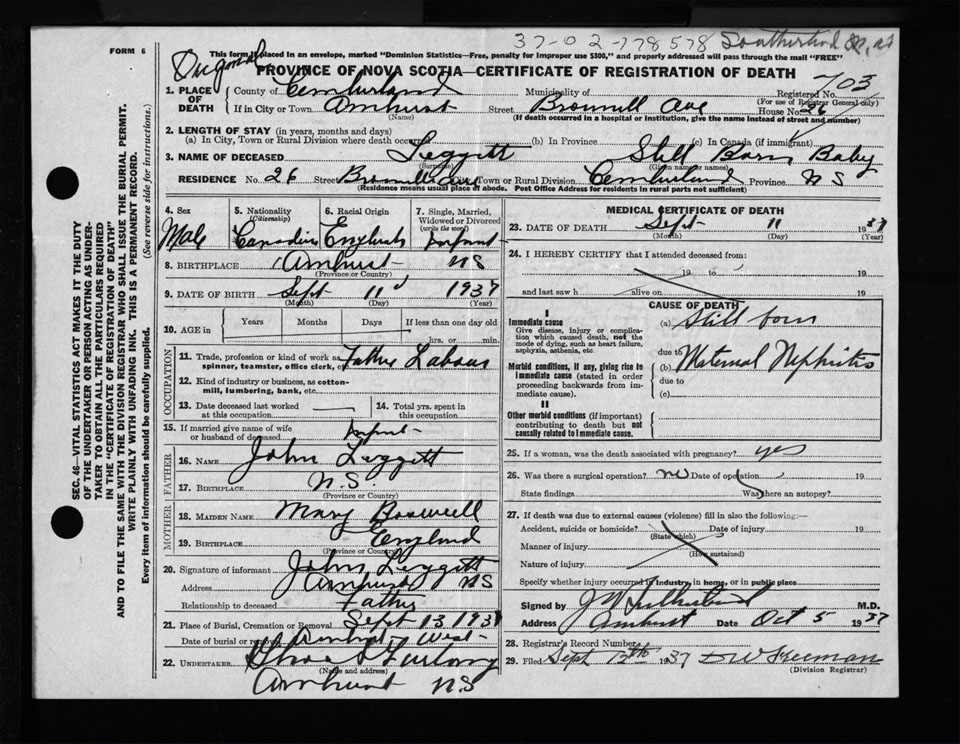 37-02-778578
FORM 6
This form if placed in an envelope, marked "Dominion Statistics—Free, penalty for improper use $300," and properly addressed will pass through the mail "FREE"
Original
PROVINCE OF NOVA SCOTIA—CERTIFICATE OF REGISTRATION OF DEATH
703
1. PLACE OF DEATH
County of Cumberland Municipality of Registered No.
(For use of Registrar General only)
If in City or Town Amherst Street House No. 26
(Name) (If death occurred in a hospital or institution, give the name instead of street and number)
2. LENGTH OF STAY (in years, months and days)
(a) In City, Town or Rural Division where death occurred (b) In Province (c) In Canada (if immigrant)
3. NAME OF DECEASED Leggett Still Born Baby
(Given name or names)
RESIDENCE No. 26 Street Town or Rural Division Cumberland Province N S
(Residence means usual place of abode. Post Office Address for residents in rural parts not sufficient)
4. Sex
Male
5. Nationality
(Citizenship)
Canadian
6. Racial Origin
English
7. Single, Married, Widowed or Divorced
(write the word)
Infant
8. BIRTHPLACE Amherst NS
(Province or Country)
9. DATE OF BIRTH Sept 11 1937
(Month) (Day) (Year)
10. AGE in
Years Months Days If less than one day old
hrs. or min.
OCCUPATION
11. Trade, profession or kind of work as spinner, teamster, office clerk, etc. Father Labour
12. Kind of industry or business, as cotton-mill, lumbering, bank, etc.
13. Date deceased last worked at this occupation
14. Total yrs. spent in this occupation
15. If married give name of wife or husband of deceased Infant
FATHER
16. NAME John Leggett
17. BIRTHPLACE N.S.
(Province or Country)
MOTHER
18. MAIDEN NAME Mary Boswell
19. BIRTHPLACE England
(Province or Country)
20. Signature of informant John Leggett
Address Amherst NS
Relationship to deceased Father
21. Place of Burial, Cremation or Removal Sept 13 1937
Date of burial or removal Amherst West
22. UNDERTAKER
(Name and address)
Amherst NS
MEDICAL CERTIFICATE OF DEATH
23. DATE OF DEATH Sept 11 1937
(Month) (Day) (Year)
24. I HEREBY CERTIFY that I attended deceased from:
19 to 19
and last saw h alive on 19
CAUSE OF DEATH
I
Immediate cause
Give disease, injury or complication which caused death, not the mode of dying, such as heart failure, asphyxia, asthenia, etc.
(a) Still born
due to
Morbid conditions, if any, giving rise to immediate cause (stated in order proceeding backwards from immediate cause).
(b) Maternal Nephritis
due to
(c)
II
Other morbid conditions (if important) contributing to death but not causally related to immediate cause.
25. If a woman, was the death associated with pregnancy? yes
26. Was there a surgical operation? no Date of operation 19
State findings Was there an autopsy?
27. If death was due to external causes (violence) fill in also the following:—
Accident, suicide or homicide? Date of injury 19
(State which)
Manner of injury
(How sustained)
Nature of injury
Specify whether injury occurred in industry, in home, or in public place
Signed by M.D.
Address Amherst Date Oct 5 1937
28. Registrar's Record Number
29. Filed Sept 12th 1937 Freeman
(Division Registrar)
SEC. 46—VITAL STATISTICS ACT MAKES IT THE DUTY
OF THE UNDERTAKER OR PERSON ACTING AS UNDER-
TAKER TO OBTAIN ALL THE PARTICULARS REQUIRED
IN THE "CERTIFICATE OF REGISTRATION OF DEATH"
AND TO FILE THE SAME WITH THE DIVISION REGISTRAR WHO SHALL ISSUE THE BURIAL PERMIT.
WRITE PLAINLY WITH UNFADING INK. THIS IS A PERMANENT RECORD.
Every item of information should be carefully supplied. (See reverse side for instructions.)